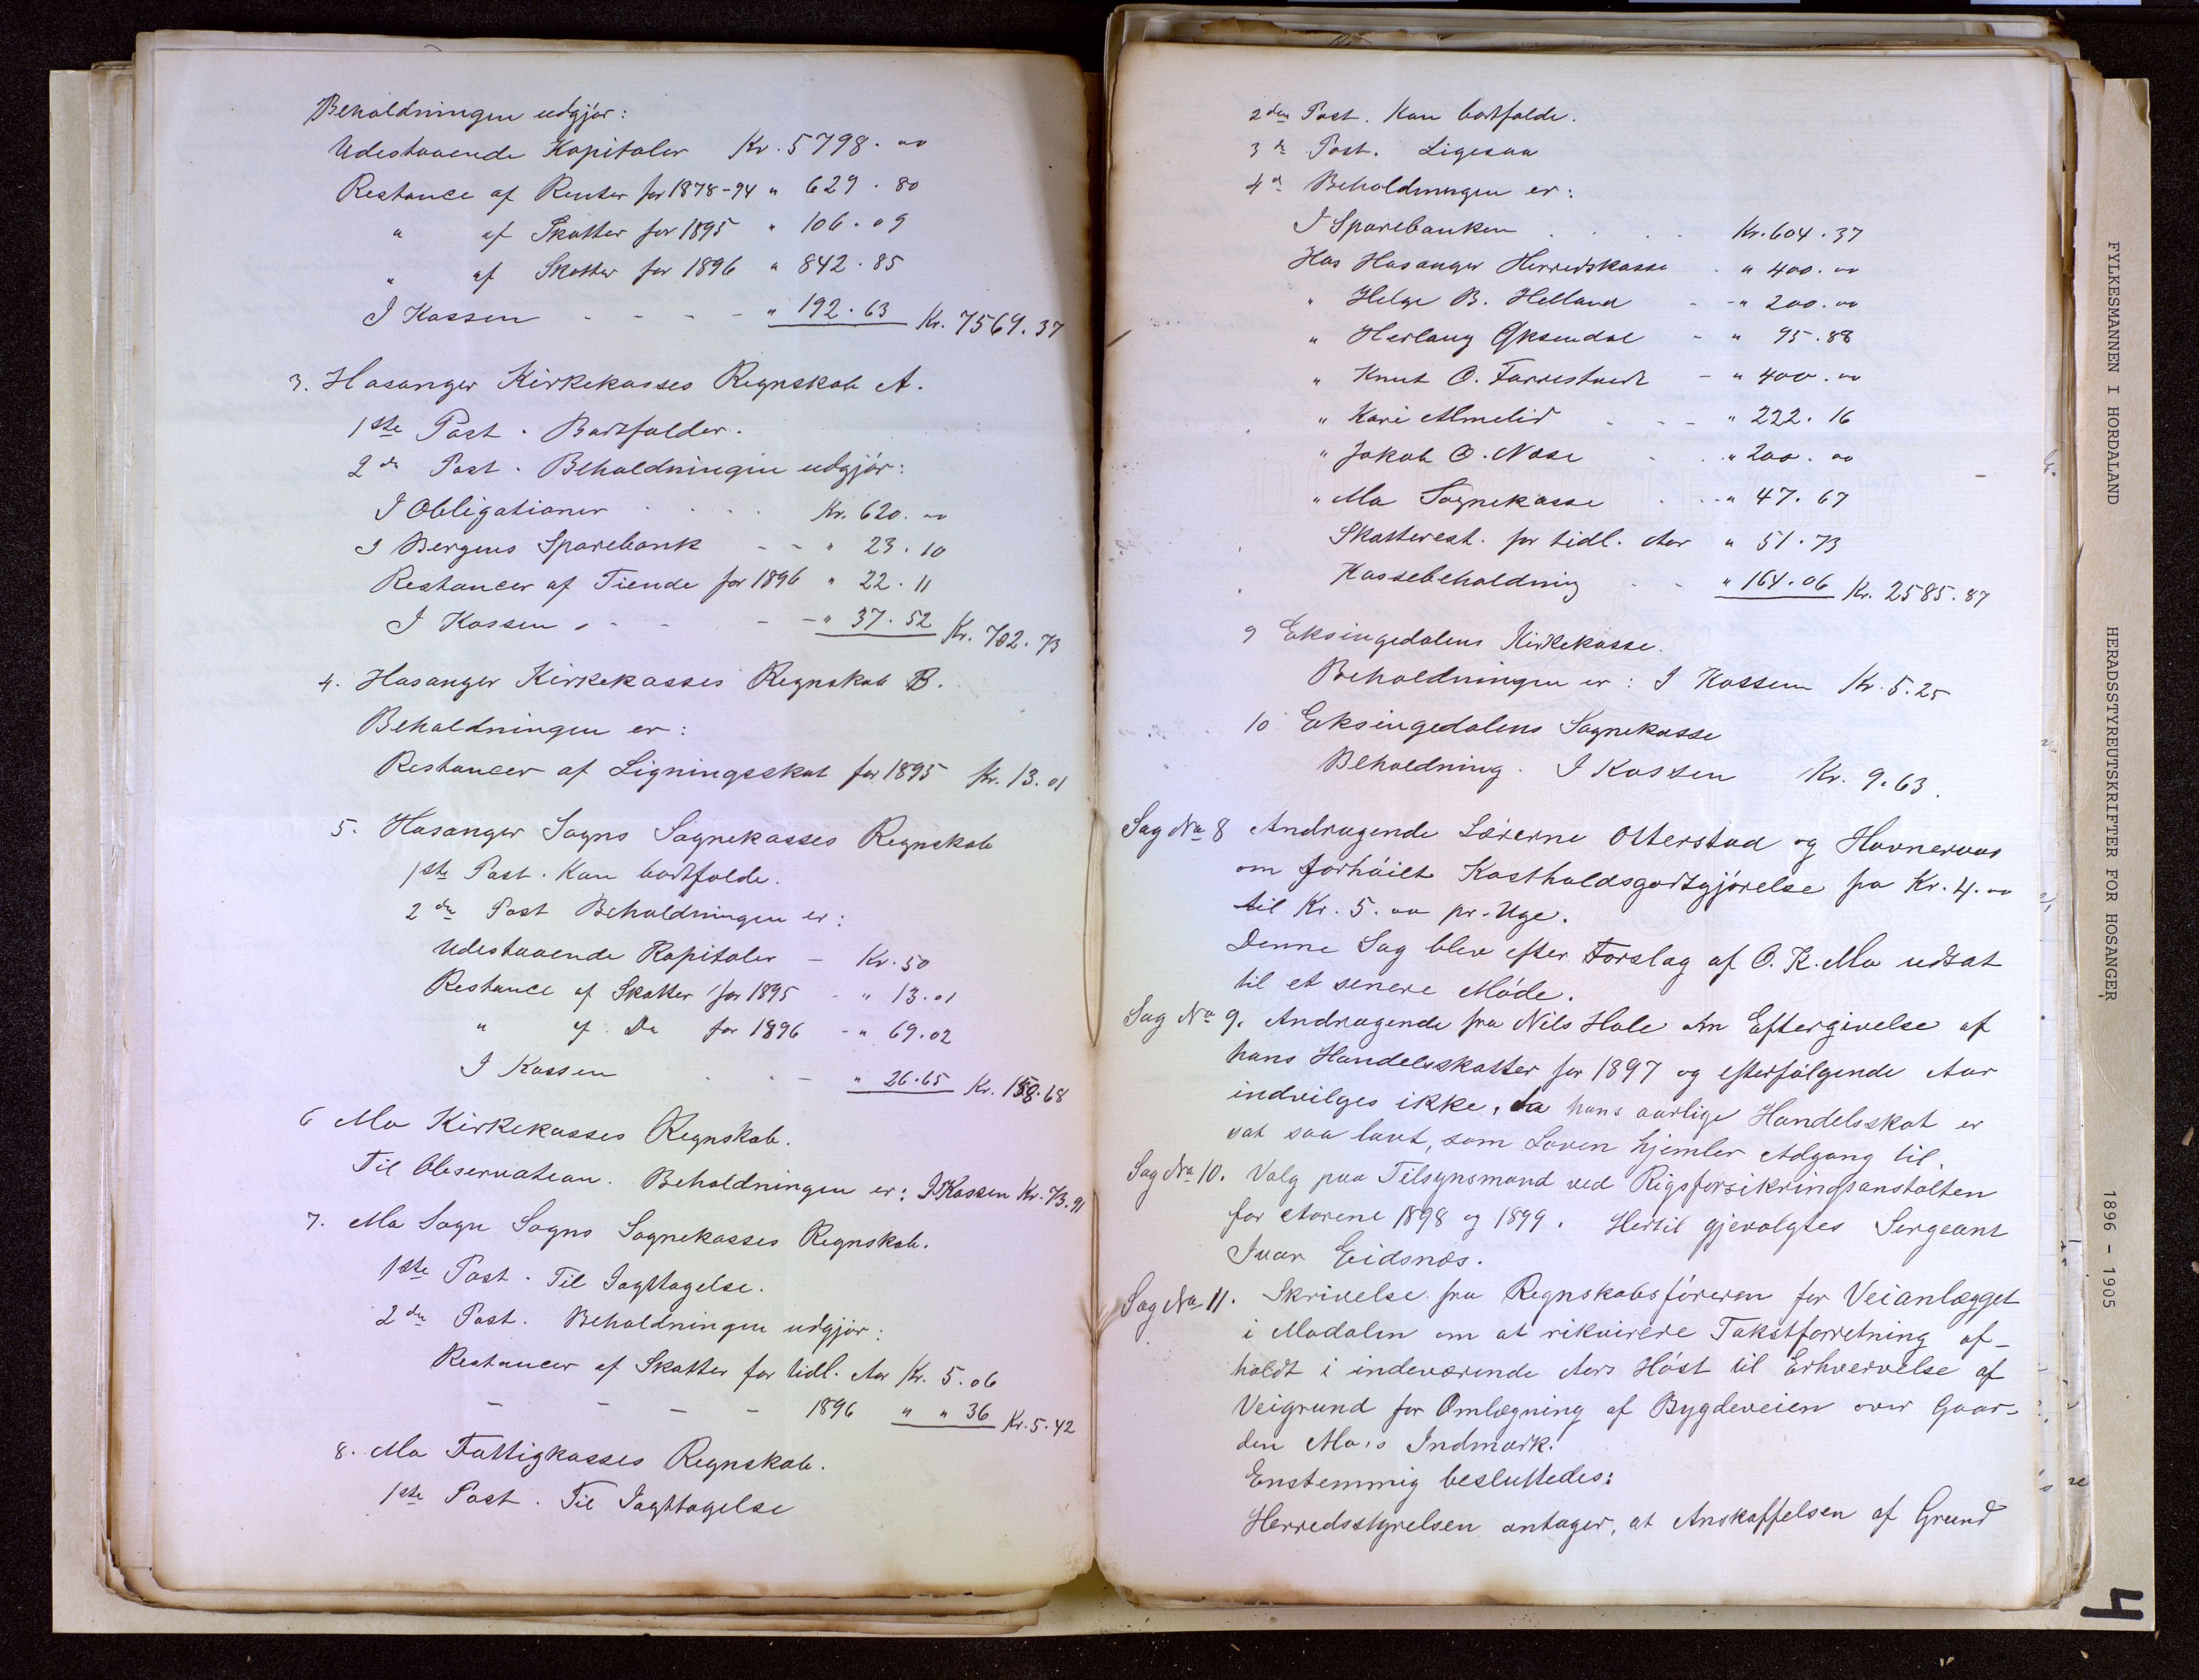 Beholdningen udgjør:
Udestaaende Kapitaler Kr. 5798.00
Restance af Renter for 1878-94 " 629.80
" af Skatter for 1895 " 106.09
" af Skatter for 1896 " 842.85
I Kassen - - - - " 192.63 Kr. 7569.37
3. Hosanger Kirkekasses Regnskab A.
1ste Post. Bortfalder.
2den Post. Beholdningen udgjør:
I Obligationer . . . . Kr. 620.00
I Bergens Sparebank - - " 23.10
Restancer af Tiende for 1896 " 22.11
I Kassen - - - - " 37.52 Kr. 702.73
4. Hosanger Kirkekasses Regnskab B.
Beholdningen er:
Restancer af Ligningsskat for 1895 Kr. 13.01
5. Hosanger Sogns Sognekasses Regnskab
1ste Post. Kan bortfalde.
2den Post Beholdningen er:
Udestaaende Kapitaler - Kr. 50
Restance af Skatter for 1895 - " 13.01
" af Do for 1896 - " 69.02
I Kassen . . - " 26.65 Kr. 158.68
6 Mo Kirkekasses Regnskab.
Til Observation. Beholdningen er: I Kassen Kr. 73.91
7. Mo Sogn Sogns Sognekasses Regnskab.
1ste Post. Til Iagttagelse.
2den Post. Beholdningen udgjør:
Restancer af Skatter for tidl. Aar Kr. 5.06
- - - - 1896 " " 36 Kr. 5.42
8. Mo Fattigkasses Regnskab.
1ste Post. Til Iagttagelse
2den Post. Kan bortfalde.
3de Post. Ligesaa
4de Beholdningen er:
I Sparebanken . . . . Kr. 604.37
Hos Hosanger Herredskasse . " 400.00
" Helge B. Helland - - " 200.00
" Herlaug Øksendal - " 95.88
" Knut O. Farrestvedt - " 400.00
" Kari Almelid . - - " 222.16
" Jakob O. Nose . . " 200.00
" Mo Sognekasse . . - " 47.67
Skatterest. for tidl. Aar " 51.73
Kassebeholdning - - " 164.06 Kr. 2585.87
9 Eksingedalens Kirkekasse.
Beholdningen er: I Kassen Kr. 5.25
10 Eksingedalens Sognekasse
Beholdning. I Kassen Kr. 9.63.
Sag No 8 Andragende Lærerne Otterstad og Hovnevas
om forhøiet Kostholdsgodtgjørelse fra Kr. 4.00
til Kr. 5.00 pr. Uge.
Denne Sag blev efter Forslag af O. K. Mo udsat
til et senere Møde.
Sag No 9. Andragende fra Nils Hole om Eftergivelse af
hans Handelsskatter for 1897 og efterfølgende Aar
indvilges ikke, da hans aarlige Handelsskat er
sat saa lavt, som Loven hjemler Adgang til.
Sag No 10. Valg paa Tilsynsmand ved Rigsforsikringsanstalten
for Aarene 1898 og 1899. Hertil gjevalgtes Sergeant
Ivar Eidsnæs.
Sag No 11. Skrivelse fra Regnskabsføreren for Veianlægget
i Modalen om at rikvirere Takstforretning af-
holdt i indeværende Aars Høst til Erhvervelse af
Veigrund for Omlægning af Bygdeveien over Gaar-
den Mo's Indmark.
Enstemmig besluttedes:
Herredsstyrelsen antager, at Anskaffelsen af Grund
FYLKESMANNEN I HORDALAND HERADSSTYREUTSKRIFTER FOR HOSANGER 1896 - 1905
4